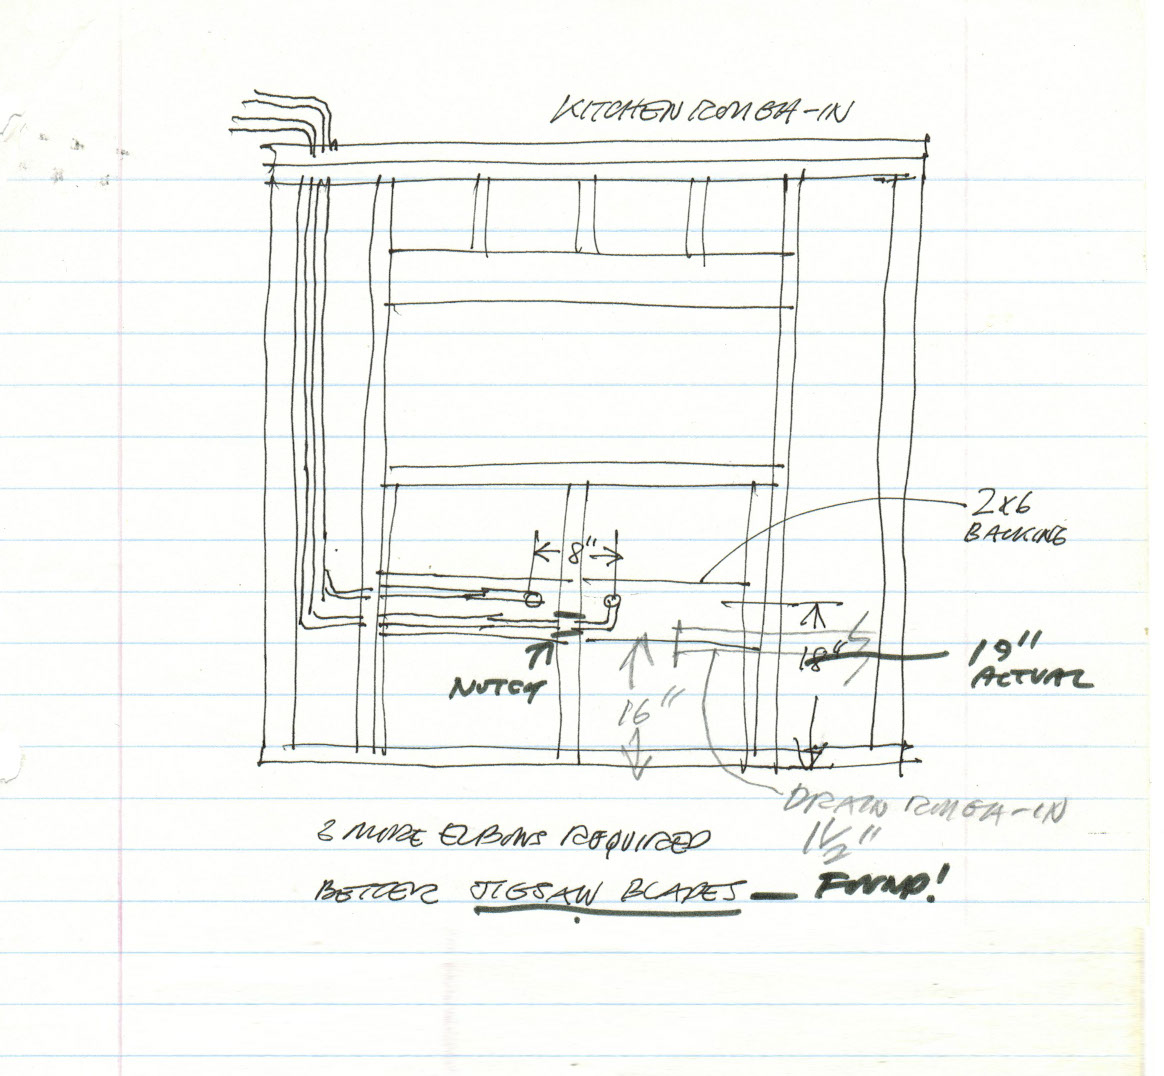 KITCHEN ROUGH-IN
2x6
BACKING
8"
18"
19"
ACTUAL
NOTCH
16"
DRAIN ROUGH-IN
1 1/2"
3 MORE ELBOWS REQUIRED
BETTER JIGSAW BLADES — FOUND!